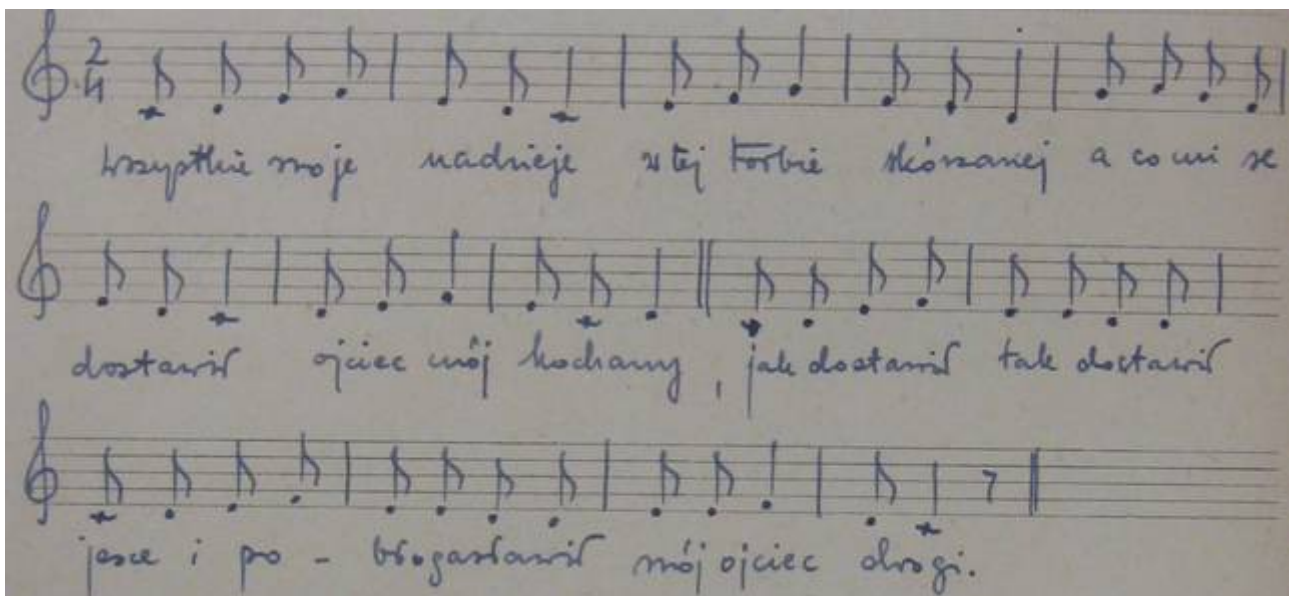 2
4
wszystkie moje nadzieje w tej torbie skórzanej a co mi se
dostawił ojciec mój kochany, jak dostawił tak dostawił
jesce i po - błogasławił mój ojciec drogi.